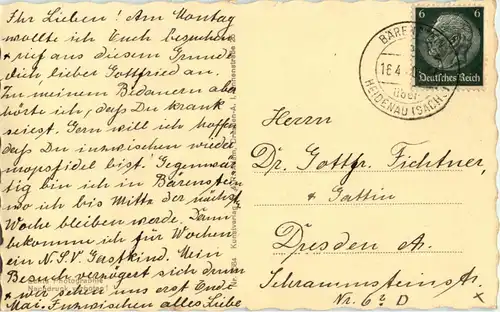 Ihr Lieben! Am Montag
wollte ich Euch besuchen
+ rief aus diesem Grunde
dich lieber Gottfried an.
Zu meinem Bedauern aber
hörte ich, daß Du krank
seiest. Gern will ich hoffen
daß Du inzwischen wieder
mopsfidel bist. Gegenwär-
tig bin ich in Bärenstein
wo ich bis Mitte der nächst.
Woche bleiben werde. Dann
bekomme ich für Wochen
ein N.S.V. Gastkind. Mein
Besuch verzögert sich drum
+ wir sehen uns erst Ende
Mai. Inzwischen alles Liebe
Echte Photographie
Nachdruck verboten!
Kunstverlag
6
6
Deutsches Reich
16.4
über
HEIDENAU (SACHS.)
Herrn
Dr. Gottfr. Fichtner,
+ Gattin
Dresden A.
Schrammsteinstr.
Nr. 6² D